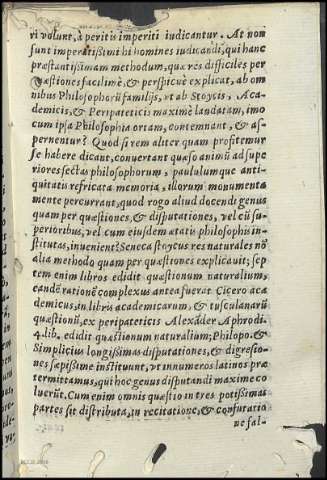 ri volunt, à peritis imperiti iudicantur. At non
sunt imperitißimi hi homines iudicandi, qui hanc
præstantißimam methodum, qua res difficiles per
quæstiones facilimè, & perspicuè explicat, ab om
nibus Philosophorũ familijs, vt ab Stoycis, Aca-
demicis, & Peripateticis maximè laudatam, imo
cum ipsa Philosophia ortam, contemnant, & as-
pernentur? Quod si rem aliter quam profitemur
se habere dicant, conuertant quæso animũ ad supe
riores sectas philosophorum, paululumque anti-
quitatis refricata memoria, illorum monumenta
mente percurrant, quod rogo aliud docendi genus
quam per quæstiones, & disputationes, vel cũ su-
perioribus, vel cum eiusdem ætatis philosophis in-
stitutas, inuenient? Seneca stoycus res naturales nõ
alia methodo quam per quæstiones explicauit; sep
tem enim libros edidit quæstionum naturalium,
candẽ rationẽ complexus antea fuerat Cicero aca
demicus, in libris academicarum, & tusculanarũ
quæstionũ, ex peripateticis Alexãder Aphrodi-
4. lib. edidit quæstionum naturalium; Philopo. &
Simplicius longißimas disputationes, & digreßio-
nes sæpißime instituunt, vt innumeros latinos præ
termittamus, qui hoc genus disputandi maxime co
luerũt. Cum enim omnis quæstio in tres potißimas
partes sit distributa, in recitatione, & confutatio
ne fal-